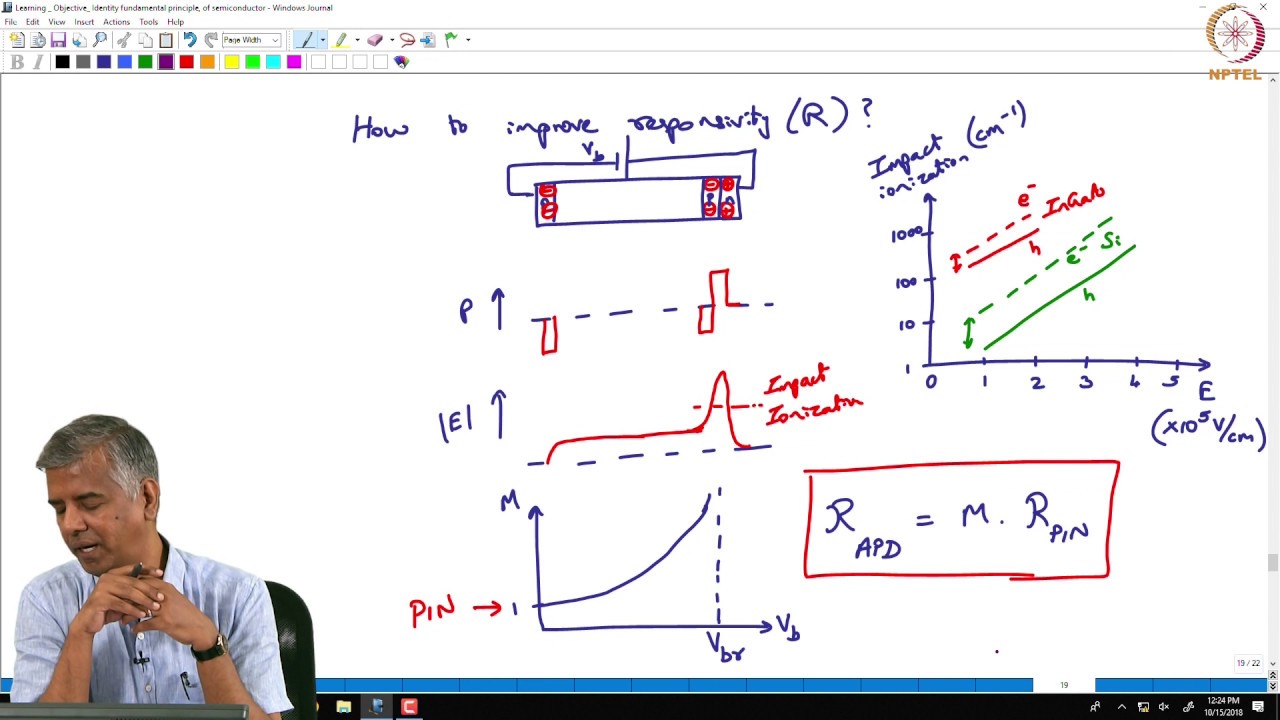 Learning _ Objective_ Identity fundamental principle, of semiconductor - Windows Journal
File Edit View Insert Actions Tools Help
Page Width
B I
NPTEL
How to improve responsivity (R) ?
V_b
P
|E|
Impact
Ionization
M
PIN → 1
V_br
V_b
Impact
ionization (cm⁻¹)
1000
100
10
1
e⁻ InGaAs
h
e⁻ Si
h
0 1 2 3 4 5 E
(×10⁵ V/cm)
R_APD = M . R_PIN
19 / 22
19
12:24 PM
10/15/2018